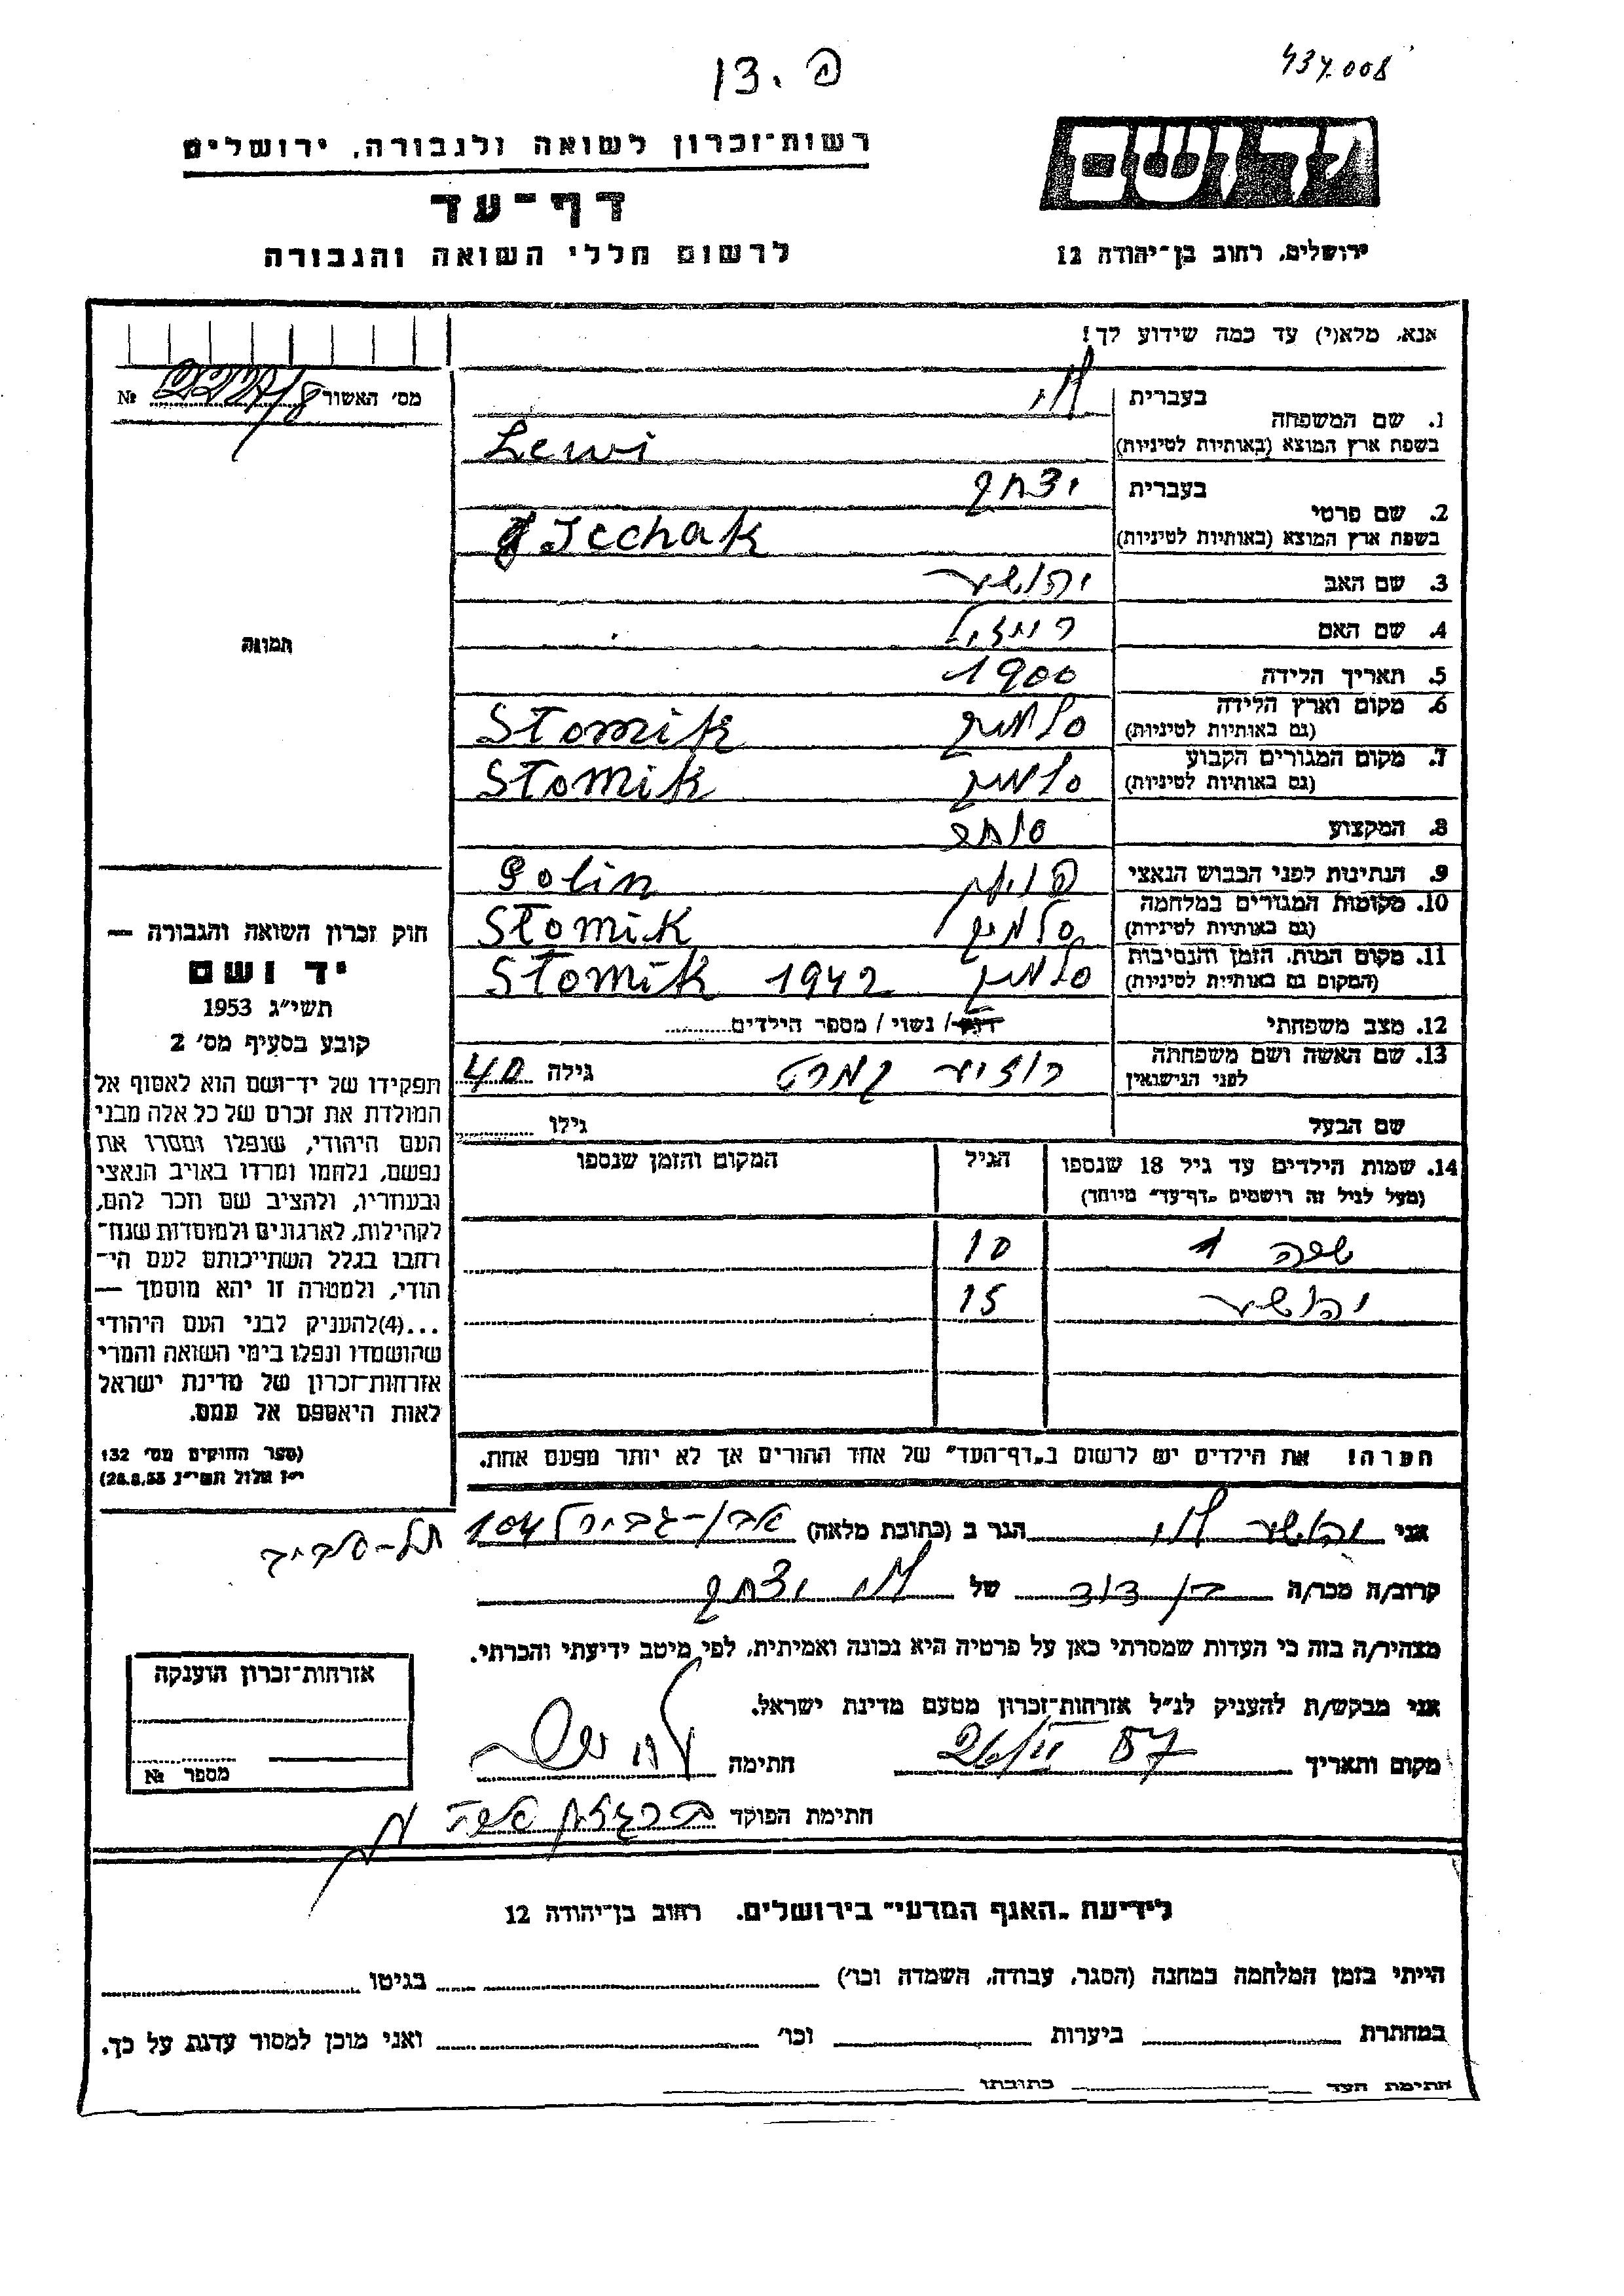 פ. 31
434.008
רשות־זכרון לשואה ולגבורה, ירושלים
דף־עד
לרשום חללי השואה והגבורה
יד ושם
ירושלים, רחוב בן־יהודה 12
אנא, מלא(י) עד כמה שידוע לך!
מס׳ האשור №
1. שם המשפחה
בעברית לוי
בשפת ארץ המוצא (באותיות לטיניות) Lewi
2. שם פרטי
בעברית יצחק
בשפת ארץ המוצא (באותיות לטיניות) Icchak
3. שם האב יהושע
4. שם האם רייזל
5. תאריך הלידה 1900
6. מקום וארץ הלידה
(גם באותיות לטיניות) סלומיק Stomik
7. מקום המגורים הקבוע
(גם באותיות לטיניות) סלומיק Stomik
8. המקצוע סוחר
9. הנתינות לפני הכבוש הנאצי פולין Polin
10. מקומות המגורים במלחמה
(גם באותיות לטיניות) סלומיק Stomik
11. מקום המות, הזמן והנסיבות
(המקום גם באותיות לטיניות) סלומיק Stomik 1942
12. מצב משפחתי רווק / נשוי / מספר הילדים
13. שם האשה ושם משפחתה
לפני הנישואין גילה 40
שם הבעל גילו
14. שמות הילדים עד גיל 18 שנספו
(מעל לגיל זה רושמים „דף־עד״ מיוחד)
הגיל
המקום והזמן שנספו
שפה 10
יהושע 15
הערה! את הילדים יש לרשום ב„דף־העד״ של אחד ההורים אך לא יותר מפעם אחת.
תמונה
חוק זכרון השואה והגבורה —
יד ושם
תשי״ג 1953
קובע בסעיף מס׳ 2
תפקידו של יד־ושם הוא לאסוף אל
המולדת את זכרם של כל אלה מבני
העם היהודי, שנפלו ומסרו את
נפשם, נלחמו ומרדו באויב הנאצי
ובעוזריו, ולהציב שם וזכר להם,
לקהילות, לארגונים ולמוסדות שנח־
רבו בגלל השתייכותם לעם הי־
הודי, ולמטרה זו יהא מוסמך —
...(4)להעניק לבני העם היהודי
שהושמדו ונפלו בימי השואה והמרי
אזרחות־זכרון של מדינת ישראל
לאות היאספם אל עמם.
(ספר החוקים מס׳ 132
י״ז אלול תשי״ג 28.8.53)
אני יהושע לוי הגר ב (כתובת מלאה) אבן-גבירול 104
תל-אביב
קרוב/ה מכר/ה בן דוד של לוי יצחק
מצהיר/ה בזה כי העדות שמסרתי כאן על פרטיה היא נכונה ואמיתית, לפי מיטב ידיעתי והכרתי.
אני מבקש/ת להעניק לנ״ל אזרחות־זכרון מטעם מדינת ישראל.
מקום ותאריך 57 חתימה
חתימת הפוקד
אזרחות־זכרון הוענקה
מספר №
לידיעת „האגף המדעי״ בירושלים, רחוב בן־יהודה 12
הייתי בזמן המלחמה במחנה (הסגר, עבודה, השמדה וכו׳) בגיטו
במחתרת ביערות וכו׳ ואני מוכן למסור עדות על כך.
חתימת העד כתובתו